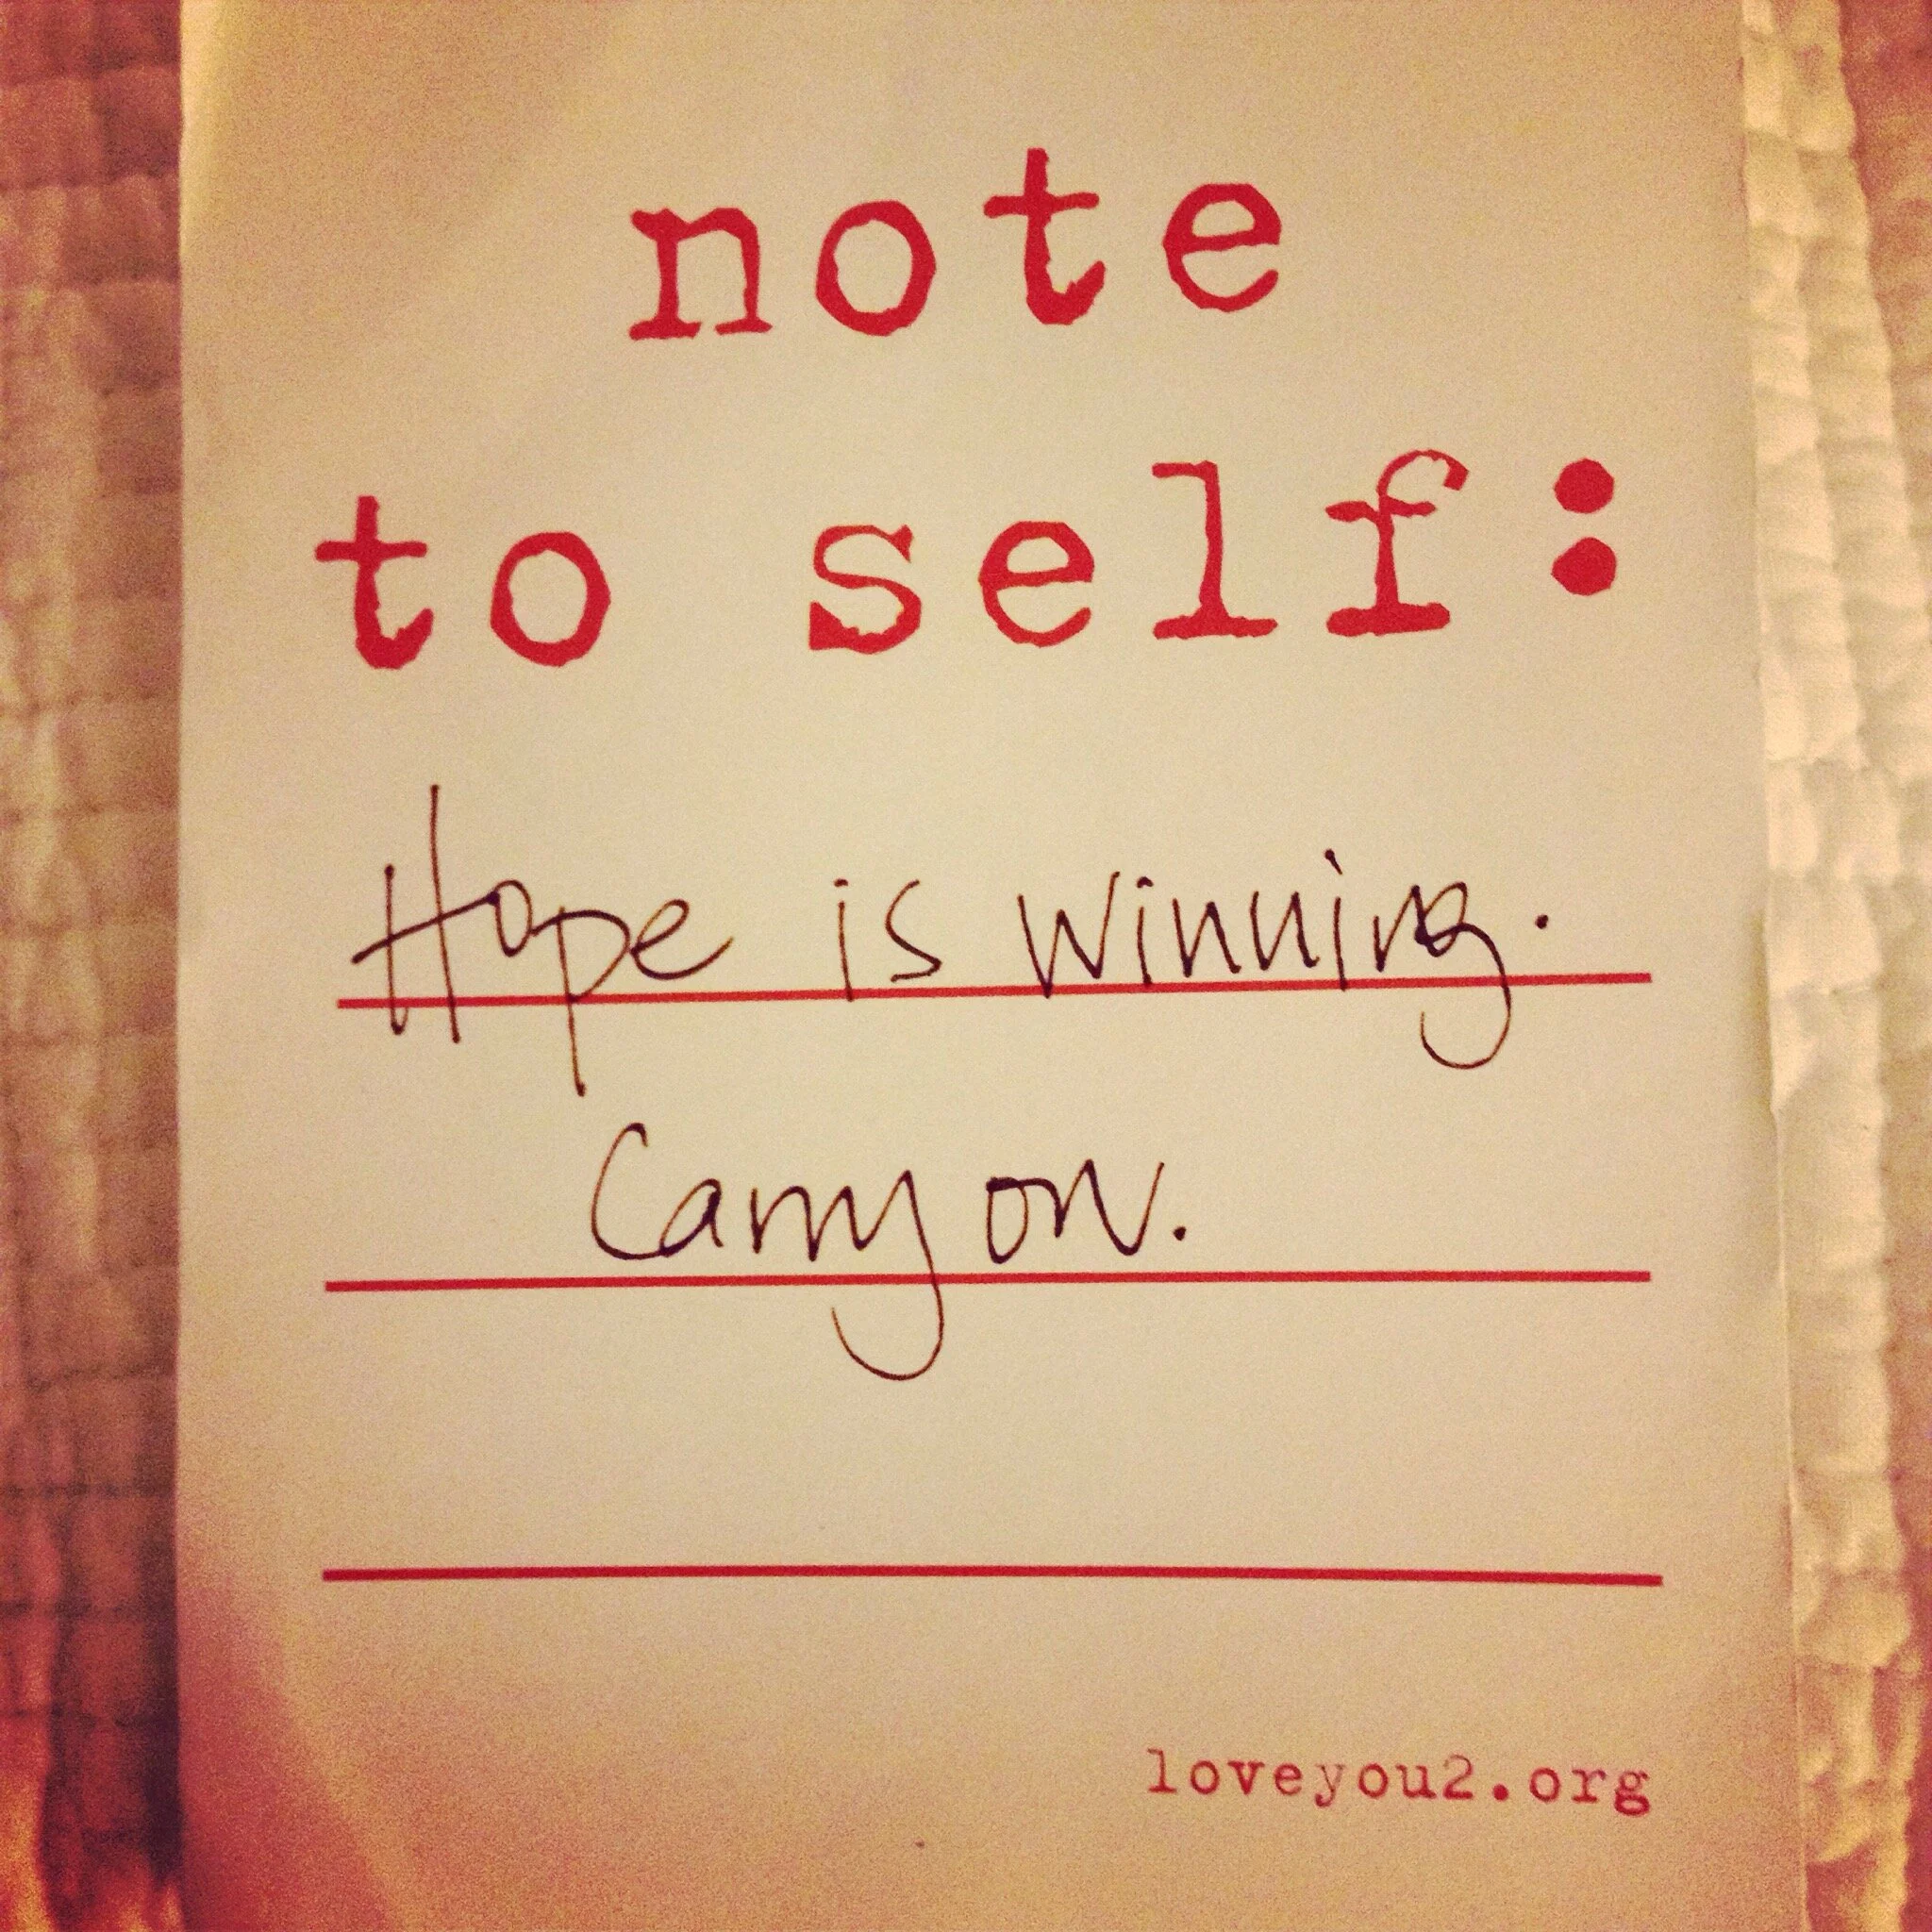 note
to self:
Hope is winning.
Carry on.
loveyou2.org